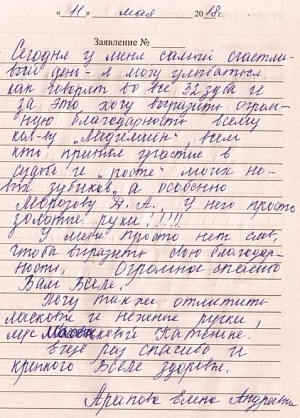 « 11 » мая 2018 г.
Заявление №
Сегодня у меня самый счастли-
вый день - я могу улыбаться
как говорят во все 32 зуба и
за это хочу выразить огром-
ную благодарность всему
кол-ву "Медилайн", всем
кто принял участие в
судьбе и "росте" моих но-
вых зубиков, а особенно
Морозову А. А. У него просто
золотые руки!!!!!
У меня просто нет слов,
чтобы выразить свою благодар-
ность. Огромное спасибо
Вам Всем.
Хочу также отметить
ласковые и нежные ручки
Катеньке.
Ещё раз спасибо и
крепкого Всем здоровья.
Арапова Елена Андреевна